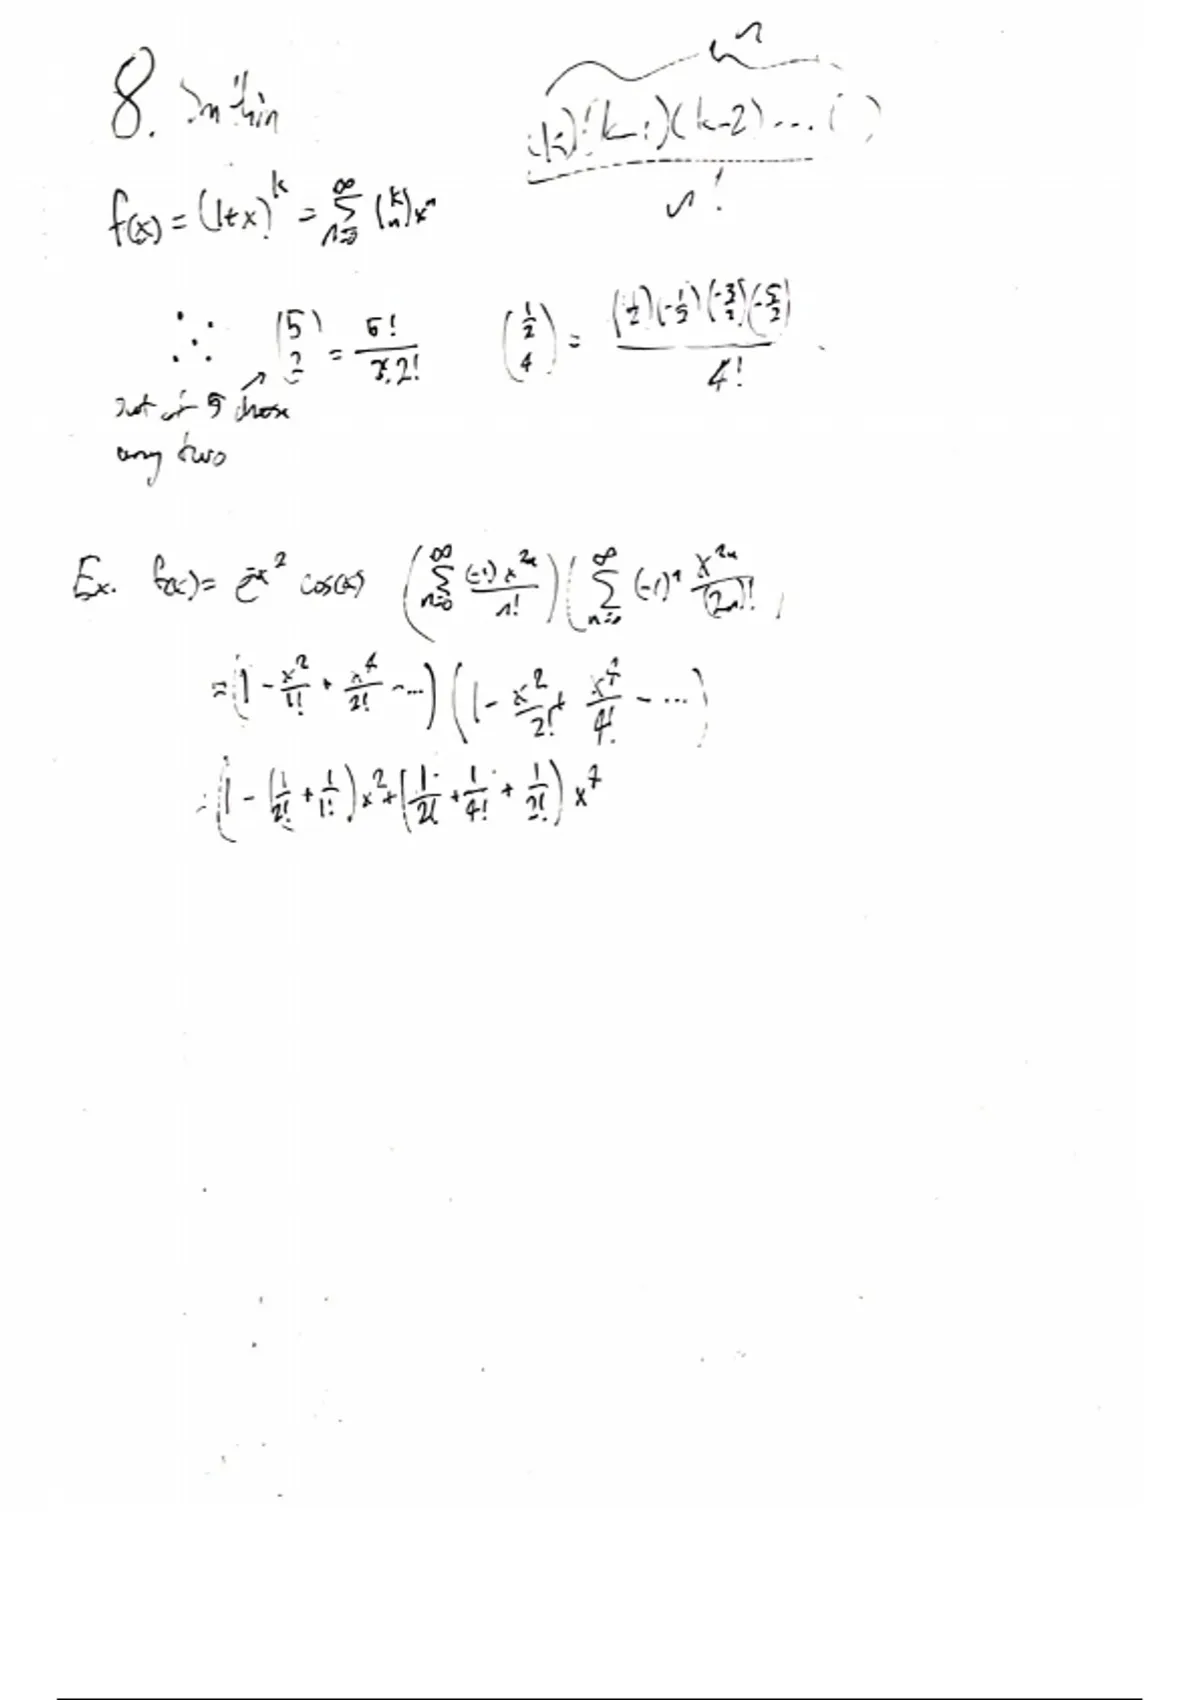 8.
n
(k)(k-1)(k-2)...( )
n!
f(x) = (1+x)^k = ∑_{n=0}^{∞} (k n) x^n
(5 2) = 5!/3!2!
(1/2 4) = (1/2)(-1/2)(-3/2)(-5/2)/4!
out of 5 chose
any two
Ex. f(x) = e^{-x^2} cos(x) (∑_{n=0}^{∞} (-1) x^{2n}/n!) (∑_{n=0}^{∞} (-1)^n x^{2n}/(2n)!)
= (1 - x^2/1! + x^4/2! - ...) (1 - x^2/2! + x^4/4! - ...)
= (1 - (1/2! + 1/1!) x^2 + (1/2! + 1/4! + 1/2!) x^4